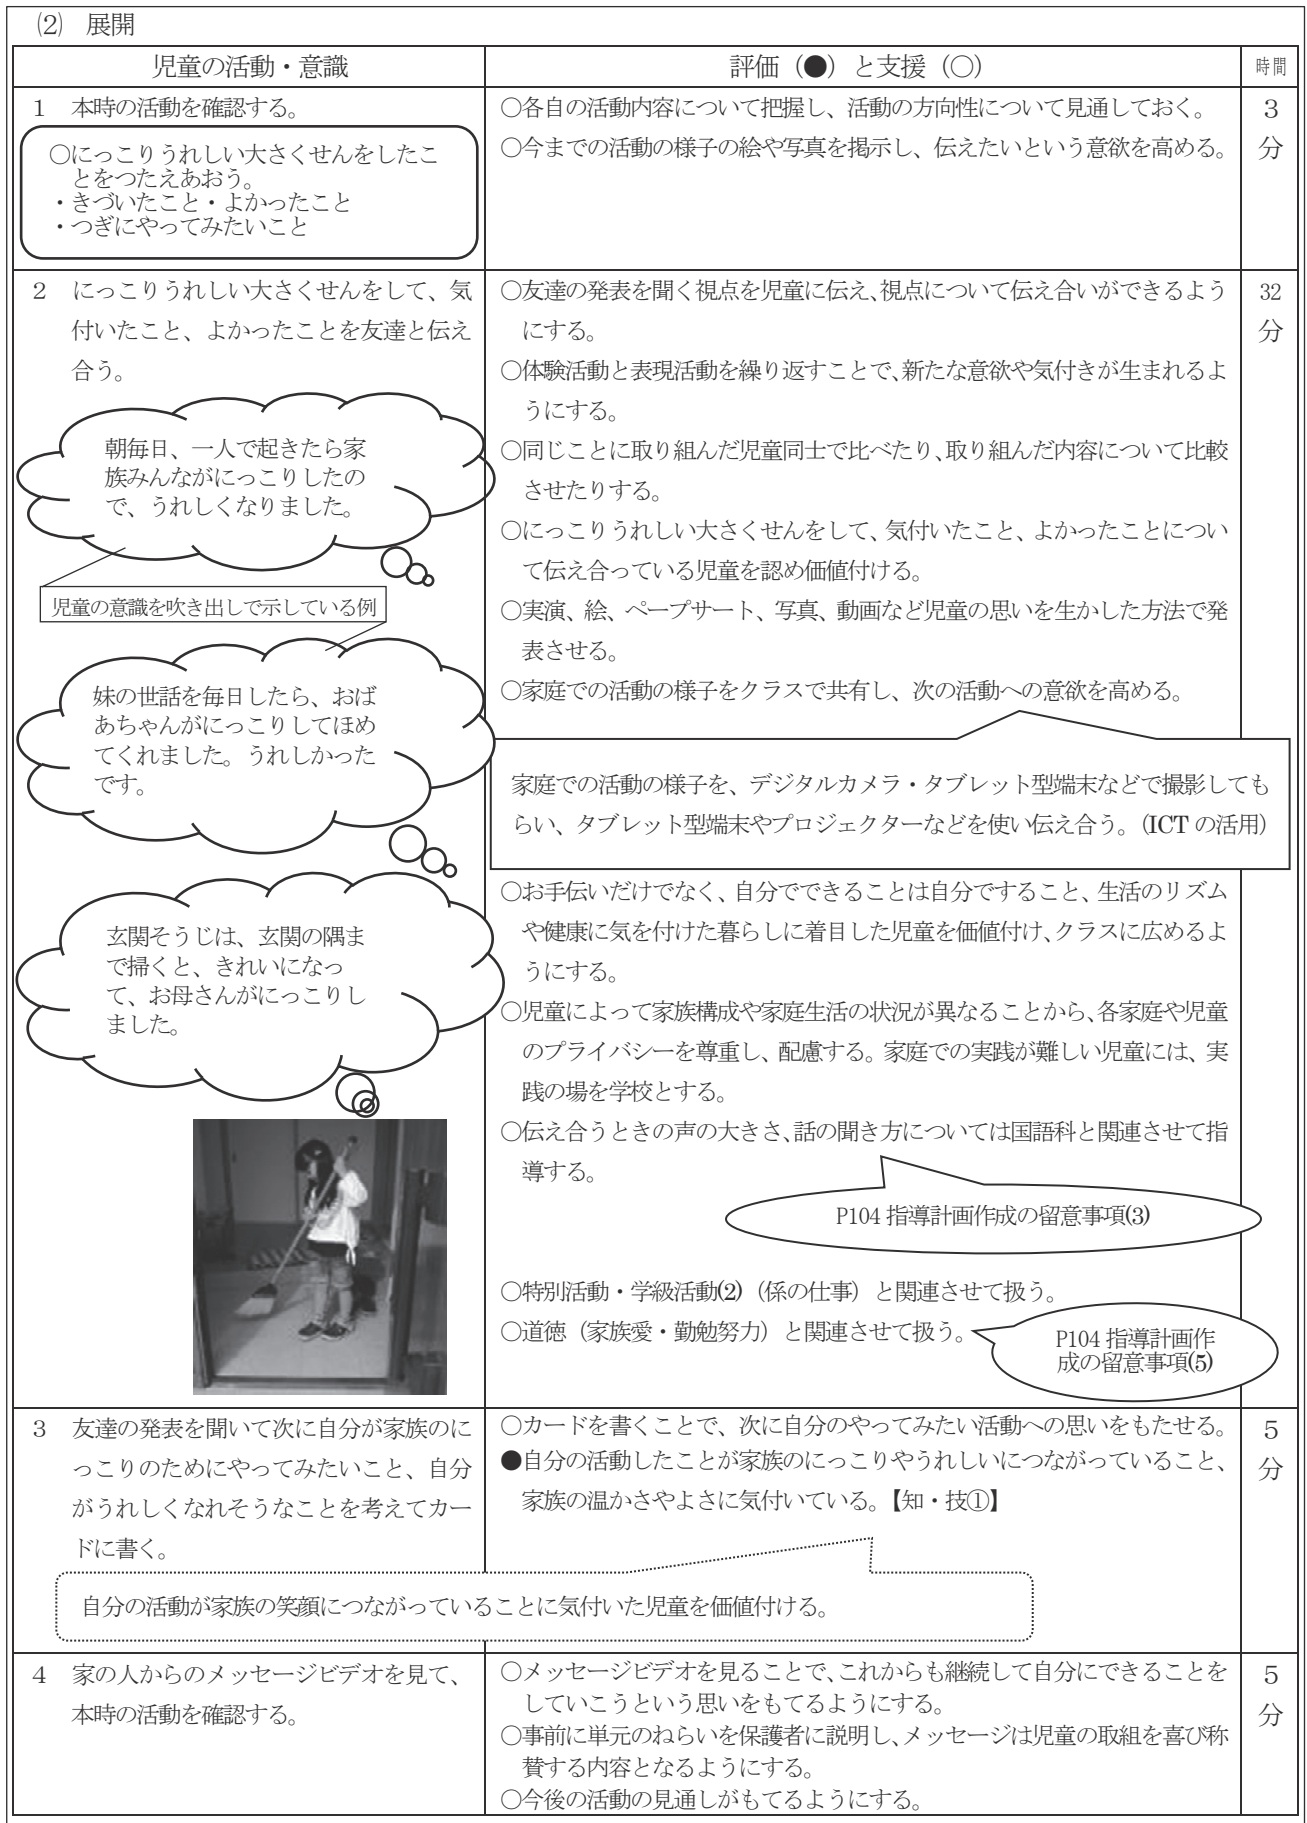 (2) 展開
児童の活動・意識
評価（●）と支援（○）
時間
1 本時の活動を確認する。
○にっこりうれしい大さくせんをしたこ
とをつたえあおう。
・きづいたこと・よかったこと
・つぎにやってみたいこと
○各自の活動内容について把握し、活動の方向性について見通しておく。
○今までの活動の様子の絵や写真を掲示し、伝えたいという意欲を高める。
3
分
2 にっこりうれしい大さくせんをして、気
付いたこと、よかったことを友達と伝え
合う。
朝毎日、一人で起きたら家
族みんながにっこりしたの
で、うれしくなりました。
児童の意識を吹き出しで示している例
妹の世話を毎日したら、おば
あちゃんがにっこりしてほめ
てくれました。うれしかった
です。
玄関そうじは、玄関の隅ま
で掃くと、きれいになっ
て、お母さんがにっこりし
ました。
○友達の発表を聞く視点を児童に伝え、視点について伝え合いができるよう
にする。
○体験活動と表現活動を繰り返すことで、新たな意欲や気付きが生まれるよ
うにする。
○同じことに取り組んだ児童同士で比べたり、取り組んだ内容について比較
させたりする。
○にっこりうれしい大さくせんをして、気付いたこと、よかったことについ
て伝え合っている児童を認め価値付ける。
○実演、絵、ペープサート、写真、動画など児童の思いを生かした方法で発
表させる。
○家庭での活動の様子をクラスで共有し、次の活動への意欲を高める。
家庭での活動の様子を、デジタルカメラ・タブレット型端末などで撮影しても
らい、タブレット型端末やプロジェクターなどを使い伝え合う。（ICT の活用）
○お手伝いだけでなく、自分でできることは自分ですること、生活のリズム
や健康に気を付けた暮らしに着目した児童を価値付け、クラスに広めるよ
うにする。
○児童によって家族構成や家庭生活の状況が異なることから、各家庭や児童
のプライバシーを尊重し、配慮する。家庭での実践が難しい児童には、実
践の場を学校とする。
○伝え合うときの声の大きさ、話の聞き方については国語科と関連させて指
導する。
P104 指導計画作成の留意事項(3)
○特別活動・学級活動(2)（係の仕事）と関連させて扱う。
○道徳（家族愛・勤勉努力）と関連させて扱う。
P104 指導計画作
成の留意事項(5)
32
分
3 友達の発表を聞いて次に自分が家族のに
っこりのためにやってみたいこと、自分
がうれしくなれそうなことを考えてカー
ドに書く。
○カードを書くことで、次に自分のやってみたい活動への思いをもたせる。
●自分の活動したことが家族のにっこりやうれしいにつながっていること、
家族の温かさやよさに気付いている。【知・技①】
自分の活動が家族の笑顔につながっていることに気付いた児童を価値付ける。
5
分
4 家の人からのメッセージビデオを見て、
本時の活動を確認する。
○メッセージビデオを見ることで、これからも継続して自分にできることを
していこうという思いをもてるようにする。
○事前に単元のねらいを保護者に説明し、メッセージは児童の取組を喜び称
賛する内容となるようにする。
○今後の活動の見通しがもてるようにする。
5
分